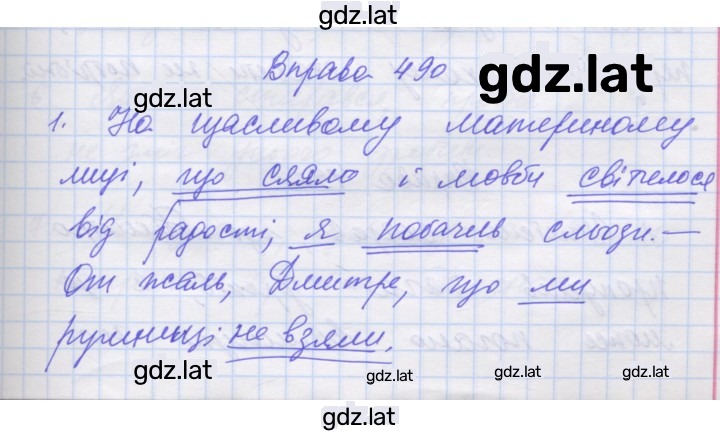 gdz.lat
Вправа 490
gdz.lat
1. На щасливому материному
лиці, що сяяло і мовби світилося
від радості, я побачив сльози. —
От жаль, Дмитре, що ми
рушниці не взяли.
gdz.lat
gdz.lat
gdz.lat
gdz.lat
gdz.lat